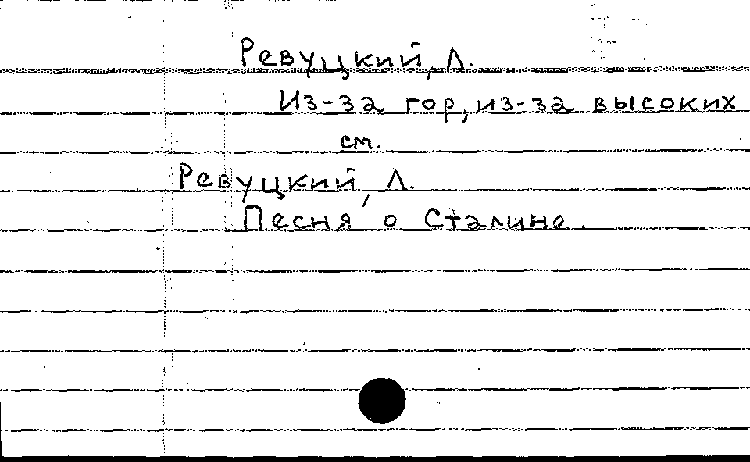 Ревуцкий, Л.
Из-за гор, из-за высоких
см.
Ревуцкий, Л.
Песня о Сталине.